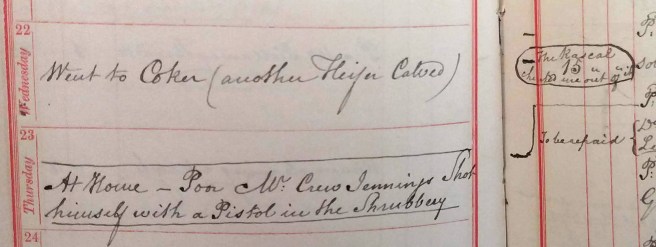 22
Wednesday
Went to Coker (another Heifer Calved)
23
Thursday
At Home – Poor Mr. Crew Jennings Shot
himself with a Pistol in the Shrubbery
24
The Rascal
15
me out of it
To be repaid